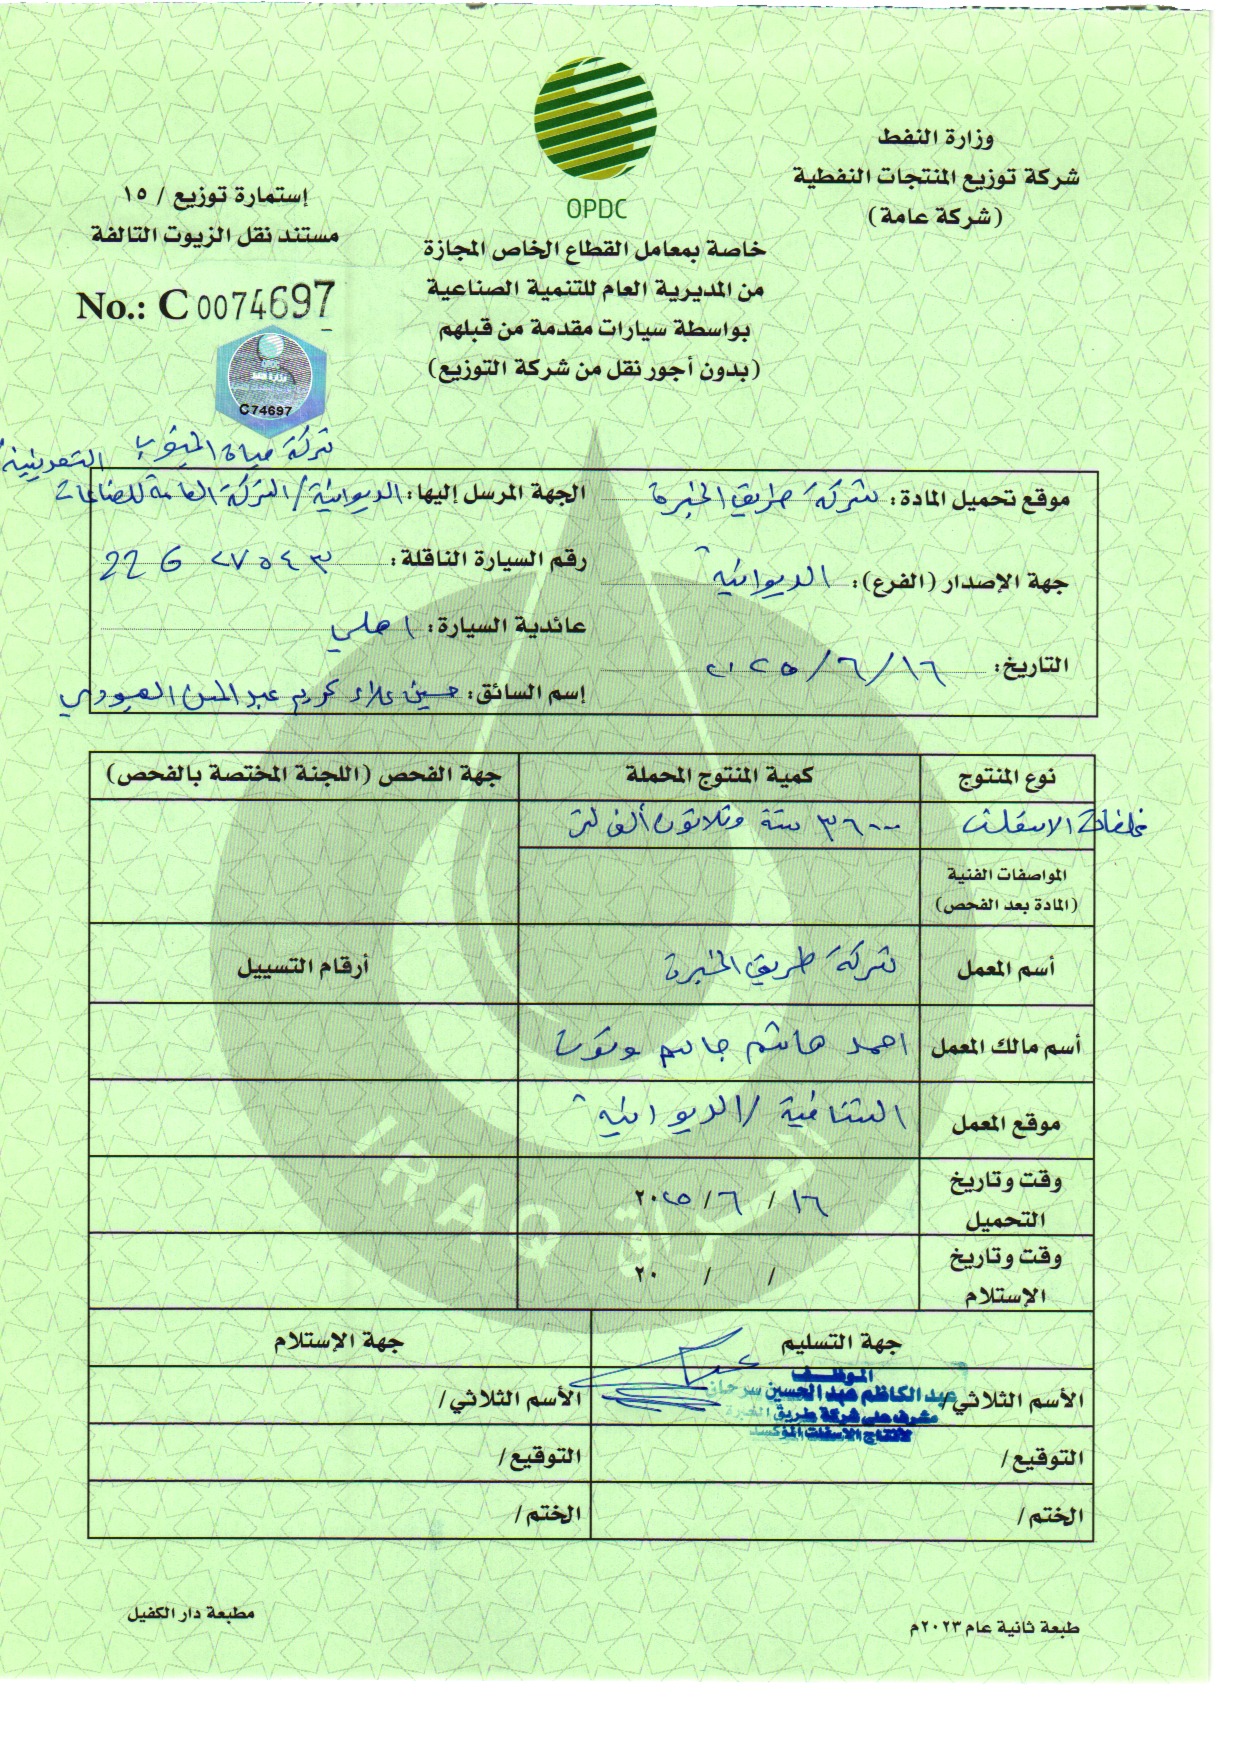 وزارة النفط
شركة توزيع المنتجات النفطية
(شركة عامة)
OPDC
خاصة بمعامل القطاع الخاص المجازة
من المديرية العام للتنمية الصناعية
بواسطة سيارات مقدمة من قبلهم
(بدون أجور نقل من شركة التوزيع)
إستمارة توزيع / ١٥
مستند نقل الزيوت التالفة
No.: C 0074697
C74697
شركة الجنوب
موقع تحميل المادة: شركة طريق الخبرة
الجهة المرسل إليها: الديوانية/ الشركة العامة للصناعات
جهة الإصدار (الفرع): الديوانية
رقم السيارة الناقلة: ٢٧٥٤٣ G 22
عائدية السيارة: اهلي
التاريخ: ١٦/٦/٢٠٢٥
إسم السائق: حسين علاء كريم عبد
نوع المنتوج
كمية المنتوج المحملة
جهة الفحص (اللجنة المختصة بالفحص)
مخلفات الاسفلت
٣٦٠٠٠ ستة وثلاثون ألف لتر
المواصفات الفنية
(المادة بعد الفحص)
أسم المعمل
شركة طريق الخبرة
أرقام التسييل
أسم مالك المعمل
احمد هاشم جاسم
موقع المعمل
الشنافية / الديوانية
وقت وتاريخ
التحميل
١٦ / ٦ / ٢٠٢٥
وقت وتاريخ
الإستلام
/ / ٢٠
جهة التسليم
جهة الإستلام
الموظف
الأسم الثلاثي/ عبد الكاظم عبد الحسين سرحان
مشرف على شركة طريق الخبرة
لانتاج الاسفلت المؤكسد
الأسم الثلاثي/
التوقيع/
التوقيع/
الختم/
الختم/
طبعة ثانية عام ٢٠٢٣م
مطبعة دار الكفيل
IRAQ العراق